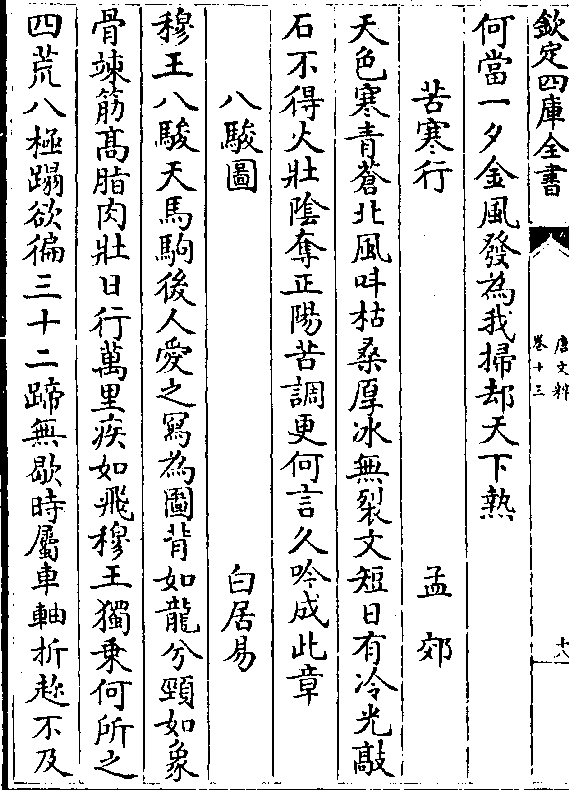 欽定四庫全書
唐文粹
卷十三
十八
何當一夕金風發為我掃却天下熱
苦寒行 孟郊
天色寒青蒼北風呌枯桑厚冰無裂文短日有冷光敲
石不得火壯陰奪正陽苦調更何言久吟成此章
八駿圖 白居易
穆王八駿天馬駒後人愛之寫為圖背如龍兮頸如象
骨竦筋髙脂肉壯日行萬里疾如飛穆王獨乗何所之
四荒八極蹋欲徧三十二蹄無歇時屬車軸折趂不及